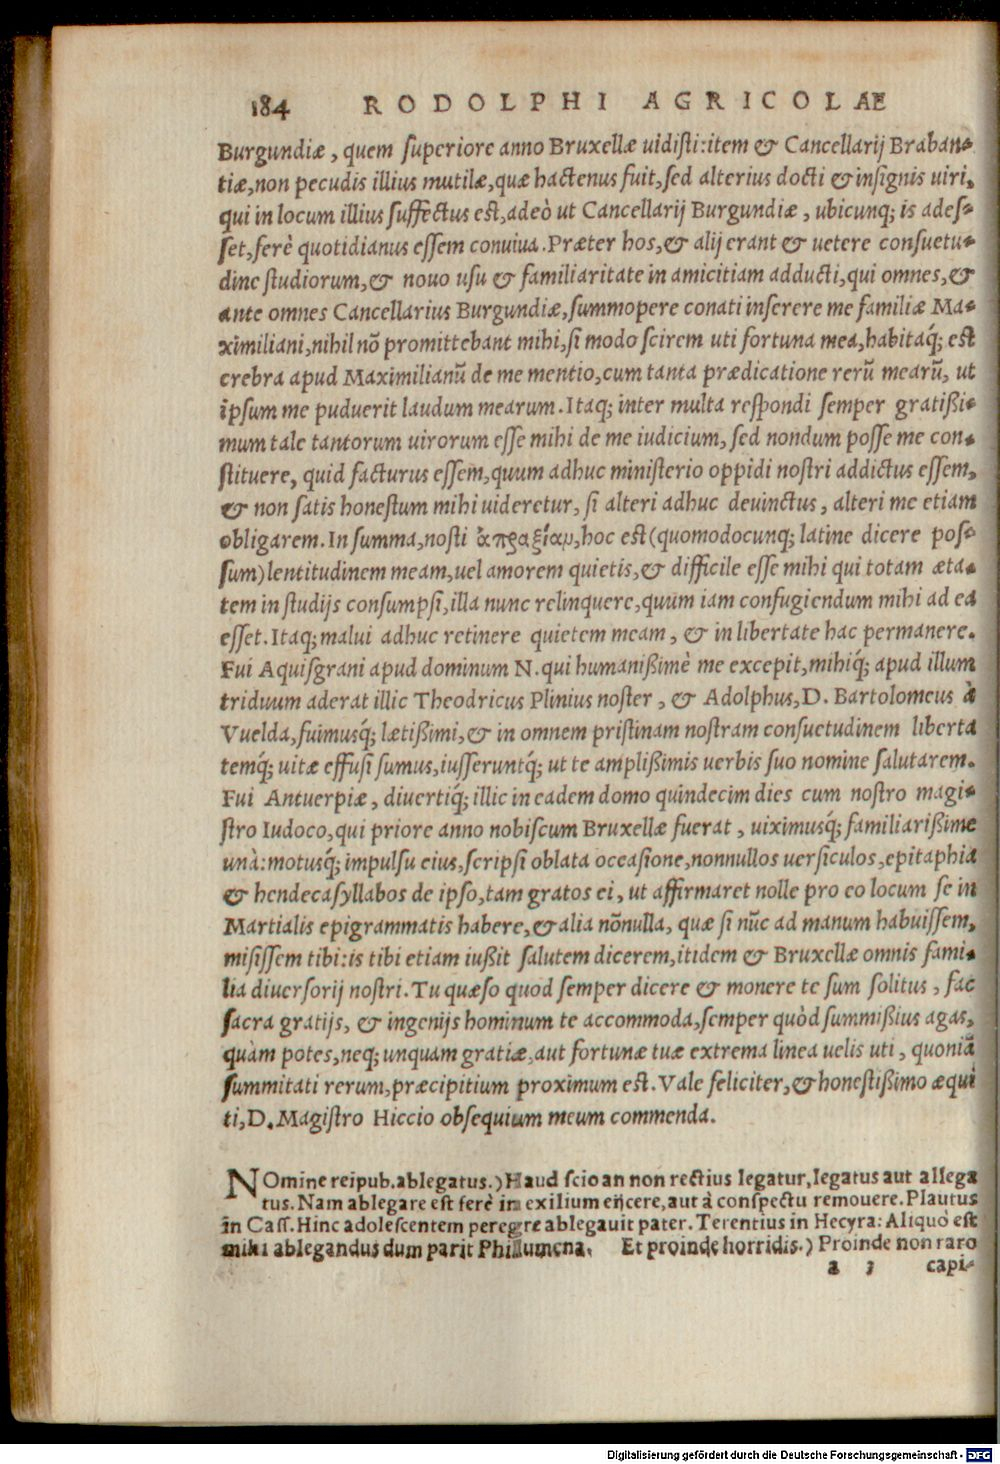 184 RODOLPHI AGRICOLAE
Burgundiæ, quem ſuperiore anno Bruxellæ uidiſti: item & Cancellarij Braban-
tiæ, non pecudis illius mutilæ, quæ hactenus fuit, ſed alterius docti & inſignis uiri,
qui in locum illius ſuffectus eſt, adeò ut Cancellarij Burgundiæ, ubicunq; is adeſ-
ſet, ferè quotidianus eſſem conuiua. Præter hos, & alij erant & uetere conſuetu-
dine ſtudiorum, & nouo uſu & familiaritate in amicitiam adducti, qui omnes, &
ante omnes Cancellarius Burgundiæ, ſummopere conati inſerere me familiæ Ma-
ximiliani, nihil nō promittebant mihi, ſi modo ſcirem uti fortuna mea, habitaq́; eſt
crebra apud Maximilianū de me mentio, cum tanta prædicatione rerū mearū, ut
ipſum me puduerit laudum mearum. Itaq; inter multa reſpondi ſemper gratißi-
mum tale tantorum uirorum eſſe mihi de me iudicium, ſed nondum poſſe me con-
ſtituere, quid facturus eſſem, quum adhuc miniſterio oppidi noſtri addictus eſſem,
& non ſatis honeſtum mihi uideretur, ſi alteri adhuc deuinctus, alteri me etiam
obligarem. In ſumma, noſti ἀπραξίαν, hoc eſt (quomodocunq; latine dicere poſ-
ſum) lentitudinem meam, uel amorem quietis, & difficile eſſe mihi qui totam æta-
tem in ſtudijs conſumpſi, illa nunc relinquere, quum iam confugiendum mihi ad ea
eſſet. Itaq; malui adhuc retinere quietem meam, & in libertate hac permanere.
Fui Aquiſgrani apud dominum N. qui humanißimè me excepit, mihiq́; apud illum
triduum aderat illic Theodricus Plinius noſter, & Adolphus, D. Bartolomeus à
Vuelda, fuimusq́; lætißimi, & in omnem priſtinam noſtram conſuetudinem liberta
temq́; uitæ effuſi ſumus, iuſſeruntq́; ut te amplißimis uerbis ſuo nomine ſalutarem.
Fui Antuerpiæ, diuertiq́; illic in eadem domo quindecim dies cum noſtro magi-
ſtro Iudoco, qui priore anno nobiſcum Bruxellæ fuerat, uiximusq́; familiarißime
unà: motusq́; impulſu eius, ſcripſi oblata occaſione, nonnullos uerſiculos, epitaphia
& hendecaſyllabos de ipſo, tam gratos ei, ut affirmaret nolle pro eo locum ſe in
Martialis epigrammatis habere, & alia nōnulla, quæ ſi nūc ad manum habuiſſem,
miſiſſem tibi: is tibi etiam iußit ſalutem dicerem, itidem & Bruxellæ omnis fami-
lia diuerſorij noſtri. Tu quæſo quod ſemper dicere & monere te ſum ſolitus, fac
ſacra gratijs, & ingenijs hominum te accommoda, ſemper quòd ſummißius agas,
quàm potes, neq; unquam gratiæ, aut fortunæ tuæ extrema linea uelis uti, quoniā
ſummitati rerum, præcipitium proximum eſt. Vale feliciter, & honeſtißimo æqui
ti, D. Magiſtro Hiccio obſequium meum commenda.
NOmine reipub. ablegatus.) Haud ſcio an non rectius legatur, legatus aut allega
tus. Nam ablegare eſt ferè in exilium eijcere, aut à conſpectu remouere. Plautus
in Caſſ. Hinc adoleſcentem peregre ablegauit pater. Terentius in Hecyra: Aliquò eſt
mihi ablegandus dum parit Philumena. Et proinde horridis.) Proinde non raro
a 3 capi-
Digitalisierung gefördert durch die Deutsche Forschungsgemeinschaft - DFG